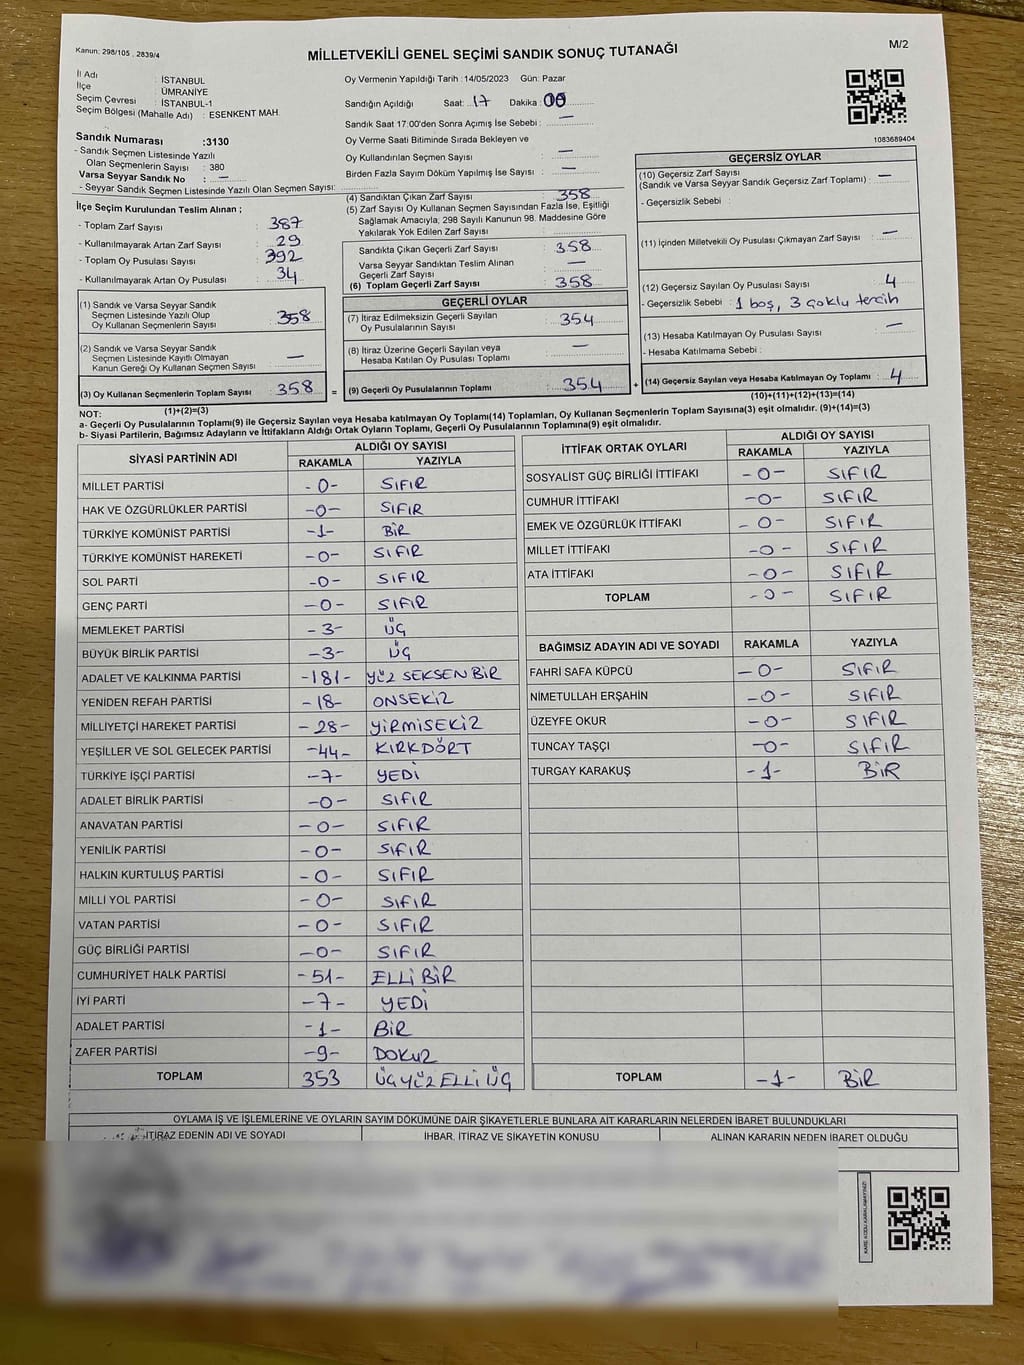 Kanun: 298/105 , 2839/4
MİLLETVEKİLİ GENEL SEÇİMİ SANDIK SONUÇ TUTANAĞI
M/2
İl Adı : İSTANBUL
İlçe : ÜMRANİYE
Seçim Çevresi : İSTANBUL-1
Seçim Bölgesi (Mahalle Adı) : ESENKENT MAH.
Sandık Numarası :3130
- Sandık Seçmen Listesinde Yazılı
Olan Seçmenlerin Sayısı : 380
Varsa Seyyar Sandık No : —
- Seyyar Sandık Seçmen Listesinde Yazılı Olan Seçmen Sayısı:
Oy Vermenin Yapıldığı Tarih : 14/05/2023 Gün: Pazar
Sandığın Açıldığı Saat: 17 Dakika : 00
Sandık Saat 17:00'den Sonra Açımış İse Sebebi : —
Oy Verme Saati Bitiminde Sırada Bekleyen ve
Oy Kullandırılan Seçmen Sayısı : —
Birden Fazla Sayım Döküm Yapılmış İse Sayısı : —
1083689404
İlçe Seçim Kurulundan Teslim Alınan ;
- Toplam Zarf Sayısı : 387
- Kullanılmayarak Artan Zarf Sayısı : 29
- Toplam Oy Pusulası Sayısı : 392
- Kullanılmayarak Artan Oy Pusulası : 34
(1) Sandık ve Varsa Seyyar Sandık
Seçmen Listesinde Yazılı Olup
Oy Kullanan Seçmenlerin Sayısı : 358
(2) Sandık ve Varsa Seyyar Sandık
Seçmen Listesinde Kayıtlı Olmayan
Kanun Gereği Oy Kullanan Seçmen Sayısı : —
(3) Oy Kullanan Seçmenlerin Toplam Sayısı : 358 =
(1)+(2)=(3)
(4) Sandıktan Çıkan Zarf Sayısı : 358
(5) Zarf Sayısı Oy Kullanan Seçmen Sayısından Fazla İse, Eşitliği
Sağlamak Amacıyla, 298 Sayılı Kanunun 98. Maddesine Göre
Yakılarak Yok Edilen Zarf Sayısı :
Sandıkta Çıkan Geçerli Zarf Sayısı : 358
Varsa Seyyar Sandıktan Teslim Alınan
Geçerli Zarf Sayısı : —
(6) Toplam Geçerli Zarf Sayısı : 358
GEÇERLİ OYLAR
(7) İtiraz Edilmeksizin Geçerli Sayılan
Oy Pusulalarının Sayısı : 354
(8) İtiraz Üzerine Geçerli Sayılan veya
Hesaba Katılan Oy Pusulası Toplamı : —
(9) Geçerli Oy Pusulalarının Toplamı : 354 +
GEÇERSİZ OYLAR
(10) Geçersiz Zarf Sayısı
(Sandık ve Varsa Seyyar Sandık Geçersiz Zarf Toplamı) : —
- Geçersizlik Sebebi :
(11) İçinden Milletvekili Oy Pusulası Çıkmayan Zarf Sayısı : —
(12) Geçersiz Sayılan Oy Pusulası Sayısı : 4
- Geçersizlik Sebebi : 1 boş, 3 çoklu tercih
(13) Hesaba Katılmayan Oy Pusulası Sayısı : —
- Hesaba Katılmama Sebebi :
(14) Geçersiz Sayılan veya Hesaba Katılmayan Oy Toplamı : 4
(10)+(11)+(12)+(13)=(14)
NOT:
a- Geçerli Oy Pusulalarının Toplamı(9) ile Geçersiz Sayılan veya Hesaba katılmayan Oy Toplamı(14) Toplamları, Oy Kullanan Seçmenlerin Toplam Sayısına(3) eşit olmalıdır. (9)+(14)=(3)
b- Siyasi Partilerin, Bağımsız Adayların ve İttifakların Aldığı Ortak Oyların Toplamı, Geçerli Oy Pusulalarının Toplamına(9) eşit olmalıdır.
SİYASİ PARTİNİN ADI ALDIĞI OY SAYISI
RAKAMLA YAZIYLA
MİLLET PARTİSİ -0- SIFIR
HAK VE ÖZGÜRLÜKLER PARTİSİ -0- SIFIR
TÜRKİYE KOMÜNİST PARTİSİ -1- BİR
TÜRKİYE KOMÜNİST HAREKETİ -0- SIFIR
SOL PARTİ -0- SIFIR
GENÇ PARTİ -0- SIFIR
MEMLEKET PARTİSİ -3- ÜÇ
BÜYÜK BİRLİK PARTİSİ -3- ÜÇ
ADALET VE KALKINMA PARTİSİ -181- YÜZ SEKSEN BİR
YENİDEN REFAH PARTİSİ -18- ONSEKİZ
MİLLİYETÇİ HAREKET PARTİSİ -28- YİRMİSEKİZ
YEŞİLLER VE SOL GELECEK PARTİSİ -44- KIRKDÖRT
TÜRKİYE İŞÇİ PARTİSİ -7- YEDİ
ADALET BİRLİK PARTİSİ -0- SIFIR
ANAVATAN PARTİSİ -0- SIFIR
YENİLİK PARTİSİ -0- SIFIR
HALKIN KURTULUŞ PARTİSİ -0- SIFIR
MİLLİ YOL PARTİSİ -0- SIFIR
VATAN PARTİSİ -0- SIFIR
GÜÇ BİRLİĞİ PARTİSİ -0- SIFIR
CUMHURİYET HALK PARTİSİ -51- ELLİ BİR
İYİ PARTİ -7- YEDİ
ADALET PARTİSİ -1- BİR
ZAFER PARTİSİ -9- DOKUZ
TOPLAM 353 ÜÇ YÜZ ELLİ ÜÇ
İTTİFAK ORTAK OYLARI ALDIĞI OY SAYISI
RAKAMLA YAZIYLA
SOSYALİST GÜÇ BİRLİĞİ İTTİFAKI -0- SIFIR
CUMHUR İTTİFAKI -0- SIFIR
EMEK VE ÖZGÜRLÜK İTTİFAKI -0- SIFIR
MİLLET İTTİFAKI -0- SIFIR
ATA İTTİFAKI -0- SIFIR
TOPLAM -0- SIFIR
BAĞIMSIZ ADAYIN ADI VE SOYADI RAKAMLA YAZIYLA
FAHRİ SAFA KÜPCÜ -0- SIFIR
NİMETULLAH ERŞAHİN -0- SIFIR
ÜZEYFE OKUR -0- SIFIR
TUNCAY TAŞÇI -0- SIFIR
TURGAY KARAKUŞ -1- BİR
TOPLAM -1- BİR
OYLAMA İŞ VE İŞLEMLERİNE VE OYLARIN SAYIM DÖKÜMÜNE DAİR ŞİKAYETLERLE BUNLARA AİT KARARLARIN NELERDEN İBARET BULUNDUKLARI
İTİRAZ EDENİN ADI VE SOYADI İHBAR, İTİRAZ VE ŞİKAYETİN KONUSU ALINAN KARARIN NEDEN İBARET OLDUĞU
KARE KODU KARALAMAYINIZ!